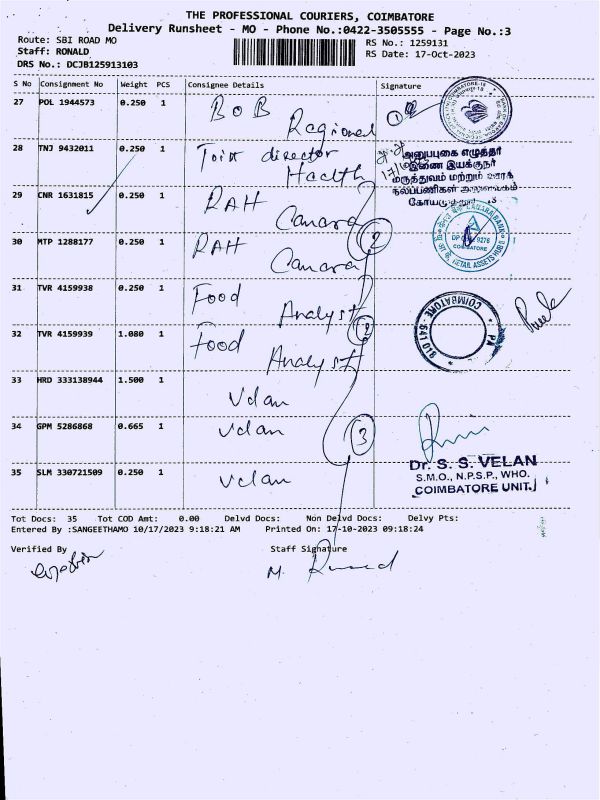 THE PROFESSIONAL COURIERS, COIMBATORE
Delivery Runsheet - MO - Phone No.:0422-3505555 - Page No.:3
Route: SBI ROAD MO
RS No.: 1259131
Staff: RONALD
RS Date: 17-Oct-2023
DRS No.: DCJB125913103
S No Consignment No Weight PCS Consignee Details Signature
27 POL 1944573 0.250 1 BOB
Regional
28 TNJ 9432011 0.250 1 Join director
Health
அலுவலகம்
29 CNR 1631815 0.250 1 RAH
Canara
30 MTP 1288177 0.250 1 RAH
Canara
2
CANARA BANK
DP 9276
COIMBATORE
RETAIL ASSETS HUB
31 TVR 4159938 0.250 1 Food
Analyst
32 TVR 4159939 1.080 1 Food
Analyst
2
COIMBATORE - 641 018
33 HRD 333138944 1.500 1 Velan
34 GPM 5286868 0.665 1 Velan
3
35 SLM 330721509 0.250 1 Velan
Dr. S. S. VELAN
S.M.O., N.P.S.P., WHO.
COIMBATORE UNIT.
Tot Docs: 35 Tot COD Amt: 0.00 Delvd Docs: Non Delvd Docs: Delvy Pts:
Entered By :SANGEETHAMO 10/17/2023 9:18:21 AM Printed On: 17-10-2023 09:18:24
Verified By Staff Signature